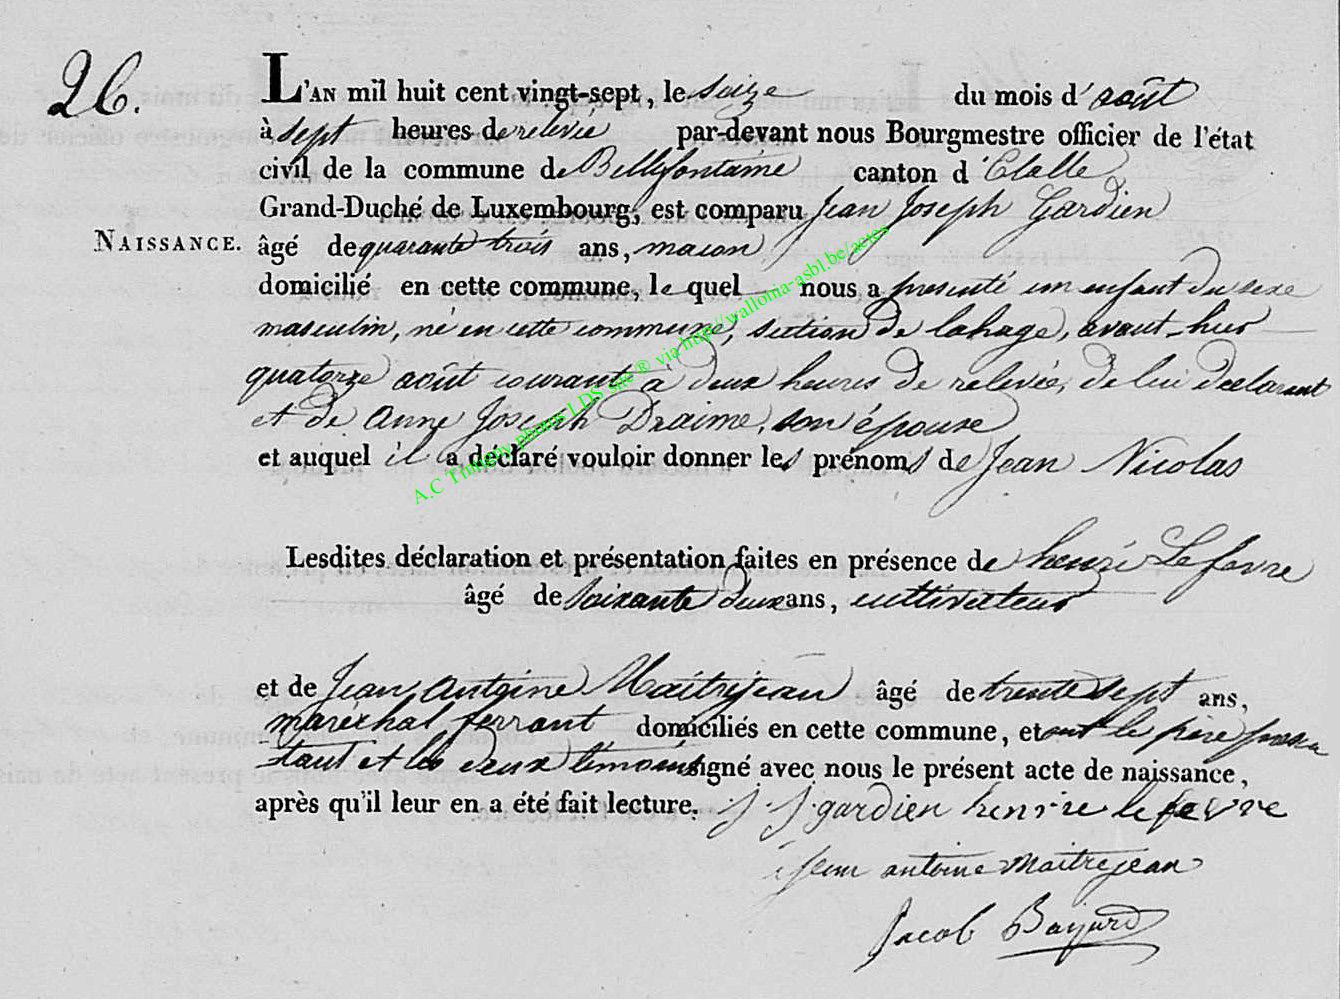 26.
L'AN mil huit cent vingt-sept, le seize du mois d'août
à sept heures de relevée par-devant nous Bourgmestre officier de l'état
civil de la commune de Bellefontaine canton d'Etalle
Grand-Duché de Luxembourg, est comparu Jean Joseph Gardien
NAISSANCE.
âgé de quarante trois ans, macon
domicilié en cette commune, le quel nous a presenté un enfant du sexe
masculin, né en cette commune, section de lahage, avant-hier
quatorze août courant à deux heures de relevée, de lui déclarant
et de Anne Joseph Draime, son épouse
et auquel il a déclaré vouloir donner les prénoms de Jean Nicolas
Lesdites déclaration et présentation faites en présence de henri Lefevre
âgé de soixante deux ans, cultivateur
et de Jean Antoine Maitrejean âgé de trente sept ans,
maréchal ferrant domiciliés en cette commune, et ont le père
et les deux témoins signé avec nous le présent acte de naissance,
après qu'il leur en a été fait lecture. J J gardien henrie lefevre
jean antoine maitrejean
Jacob Bayard
A.C Tintigny photos LDS site ® via http://wallonia-asbl.be/actes